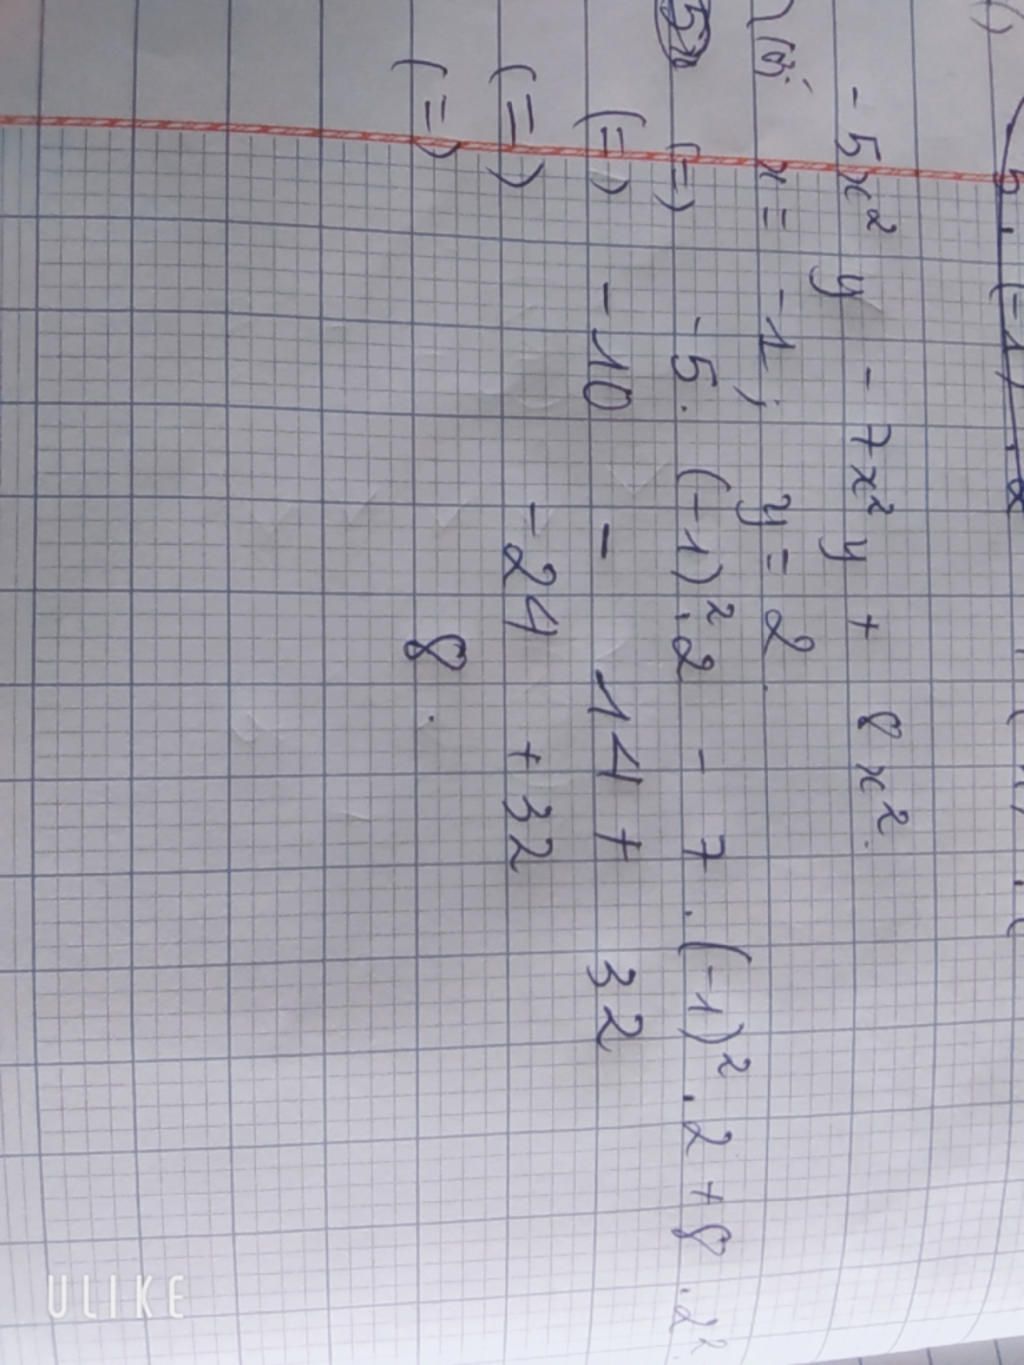 - 5x² y - 7x² y + 8x².
x = -1; y = 2.
(=) -5. (-1)².2 - 7 . (-1)² . 2 + 8 . 2².
(=) - 10 - 14 + 32
(=) - 24 + 32
(=) 8.
ULIKE